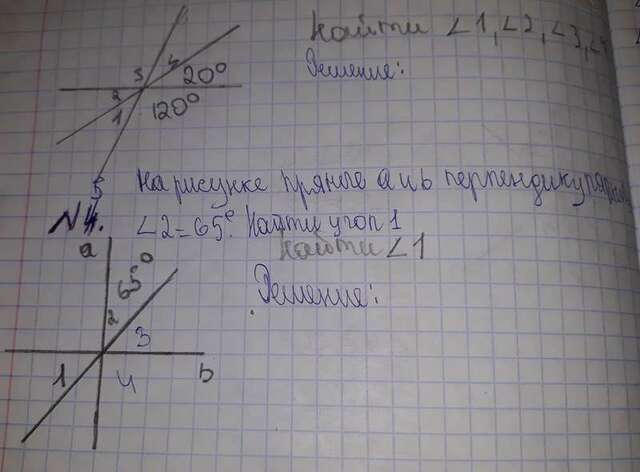 Найти ∠1, ∠2, ∠3, ∠4
Решение:
3 4 20°
2
1 120°
№4. На рисунке прямые a и b перпендикулярны
∠2=65°. Найти угол 1
Найти ∠1
Решение:
a
65°
2
3
1 4 b